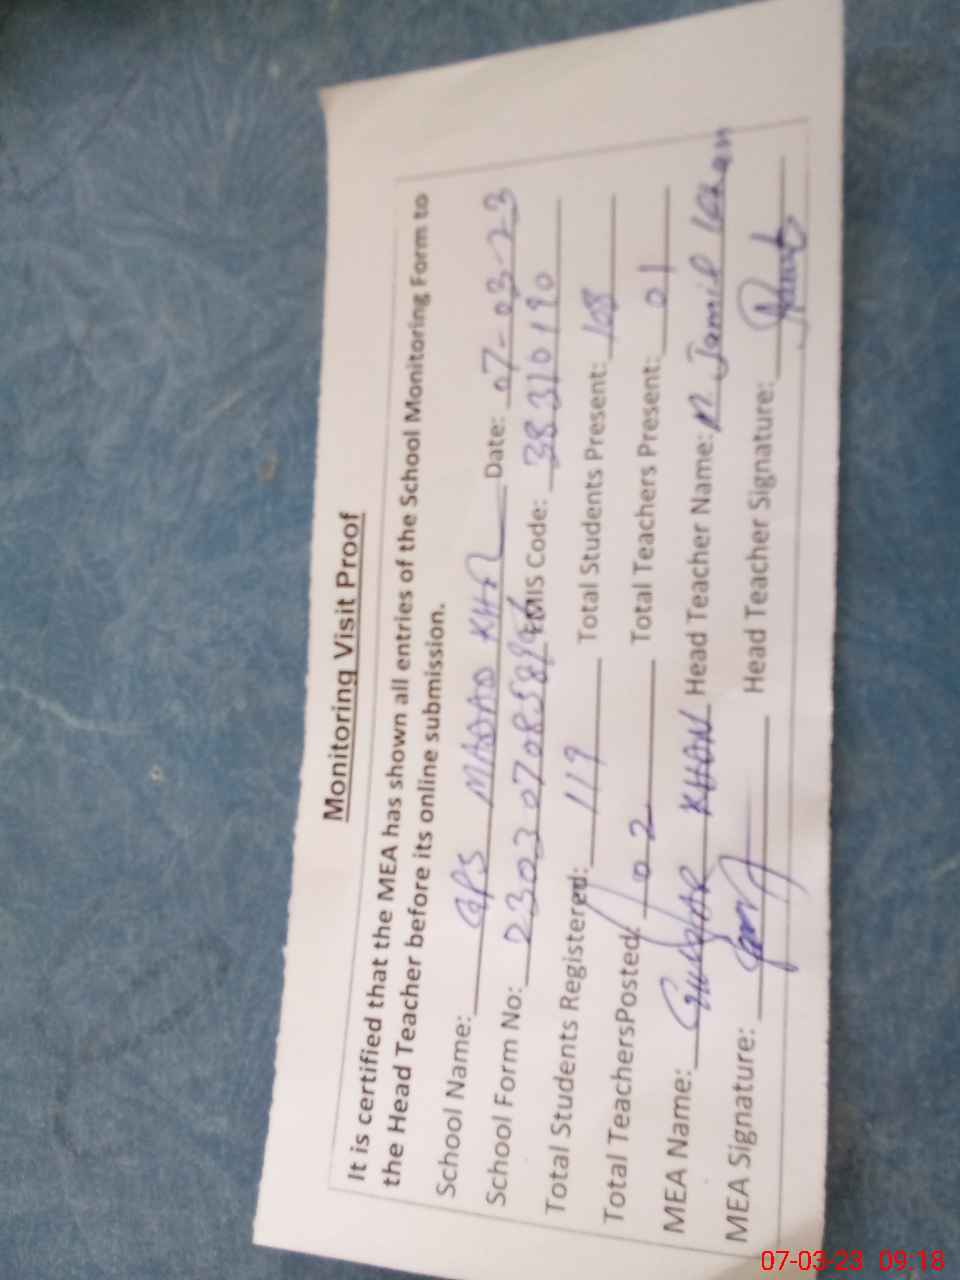 Monitoring Visit Proof
It is certified that the MEA has shown all entries of the School Monitoring Form to
the Head Teacher before its online submission.
School Name: GPS MADAD KHEL Date: 07-03-23
School Form No: EMIS Code: 38310190
Total Students Registered: 119 Total Students Present: 108
Total TeachersPosted: 02 Total Teachers Present: 01
MEA Name: KHAN Head Teacher Name: Jamil Khan
MEA Signature: Head Teacher Signature:
07-03-23 09:18